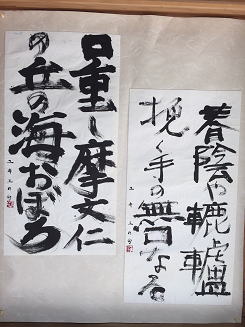 春陰や轆轤
挽く手の無口なる
口重し摩文仁
の丘の海おぼろ